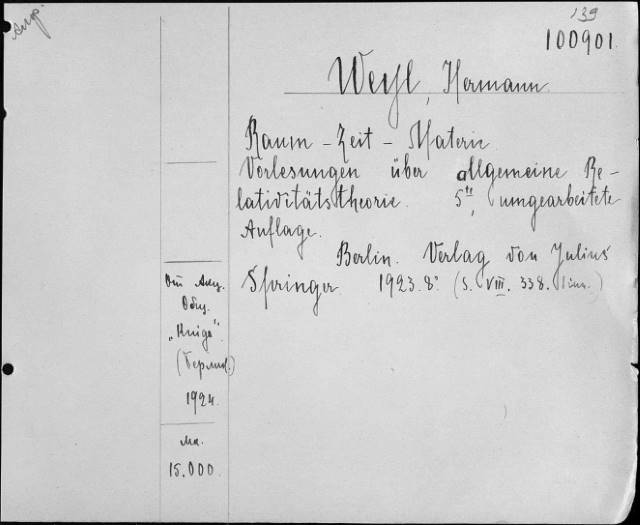 139
100901
Weyl, Hermann.
Raum - Zeit - Materie
Vorlesungen über allgemeine Re-
latiditäts theorie. 5te, umgearbeitete
Auflage.
Berlin. Verlag von Julius
Springer 1923. 8°. (S. VIII. 338.
Общ.
„Книга".
(Берлин.)
1924.
15.000.